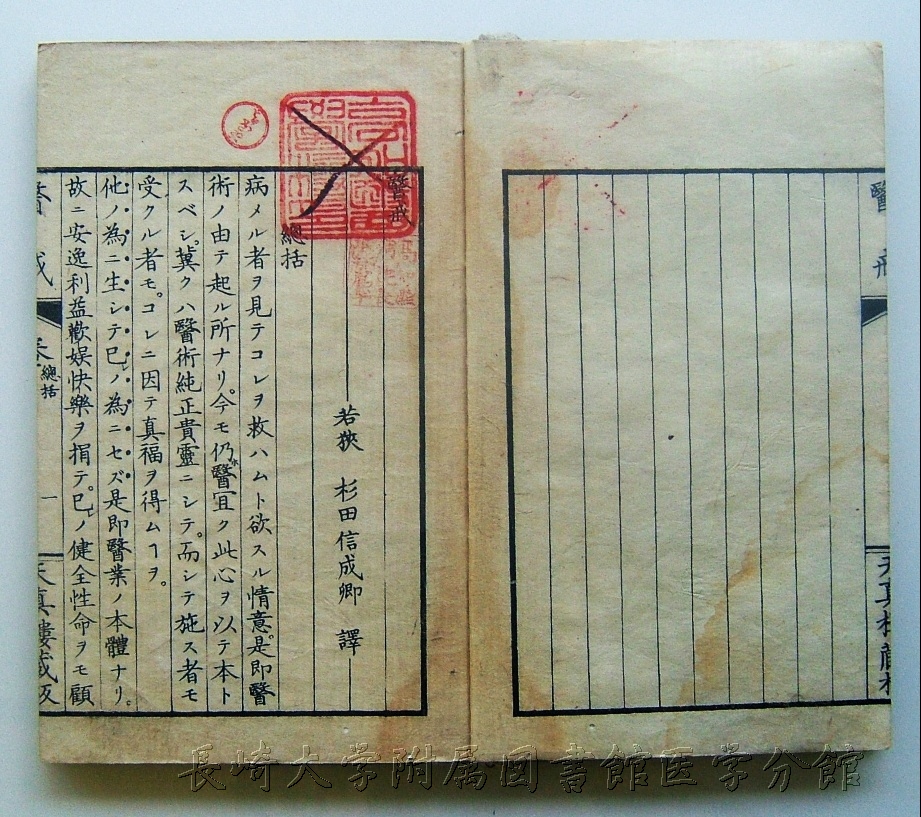 醫戒
若狹 杉田信成卿 譯
總括
病メル者ヲ見テコレヲ救ハムト欲スル情意。是即醫
術ノ由テ起ル所ナリ。今モ仍醫宜ク此心ヲ以テ本ト
スベシ。冀クハ醫術純正貴靈ニシテ。而シテ施ス者モ
受クル者モ。コレニ因テ真福ヲ得ムヿヲ。
他ノ為ニ生シテ己ノ為ニセズ是即醫業ノ本體ナリ。
故ニ安逸利益歡娯快樂ヲ捐テ。己ノ健全性命ヲモ顧
醫戒
總括
一
天真樓藏板
長崎大学附属図書館医学分館